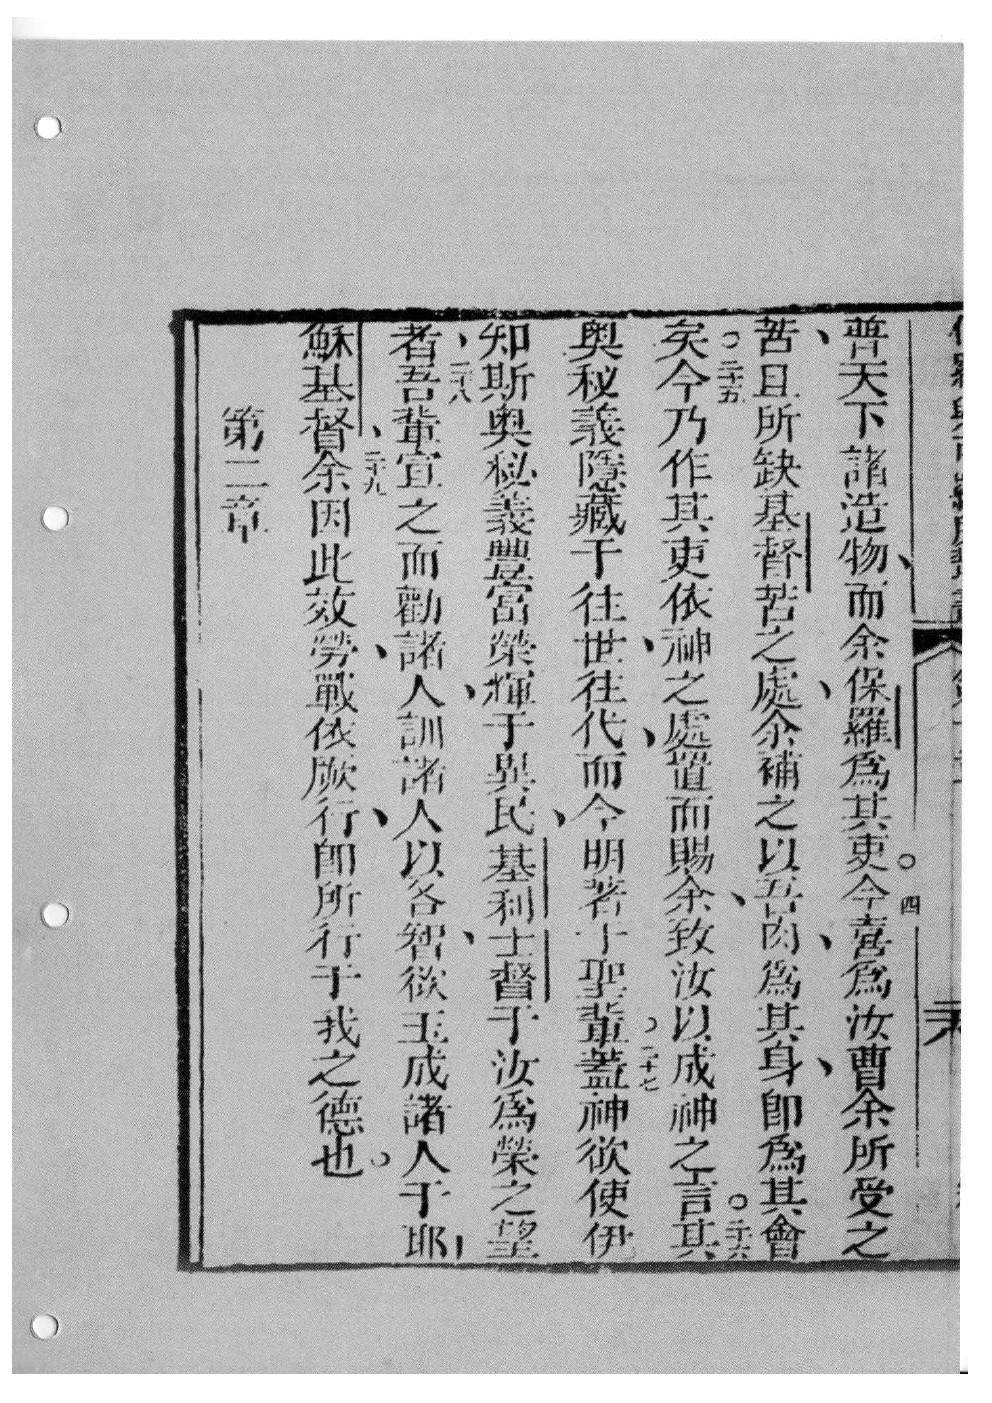 普天下諸造物、而余保羅為其吏。二十四今喜為汝曹余所受之
苦、且所缺基督苦之處、余補之以吾肉、為其身、即為其會
矣。二十五今乃作其吏依神之處置而賜余、致汝以成神之言。二十六其
奧秘義隱藏于往世、往代、而今明著于聖輩。二十七蓋神欲使伊
知斯奧秘義豐富榮輝于異民、基利士督于汝為榮之望
者、二十八吾輩宣之而勸諸人、訓諸人以各智、欲玉成諸人于耶
穌基督、二十九余因此效勞、戰依厥行、即所行于我之德也。
第二章